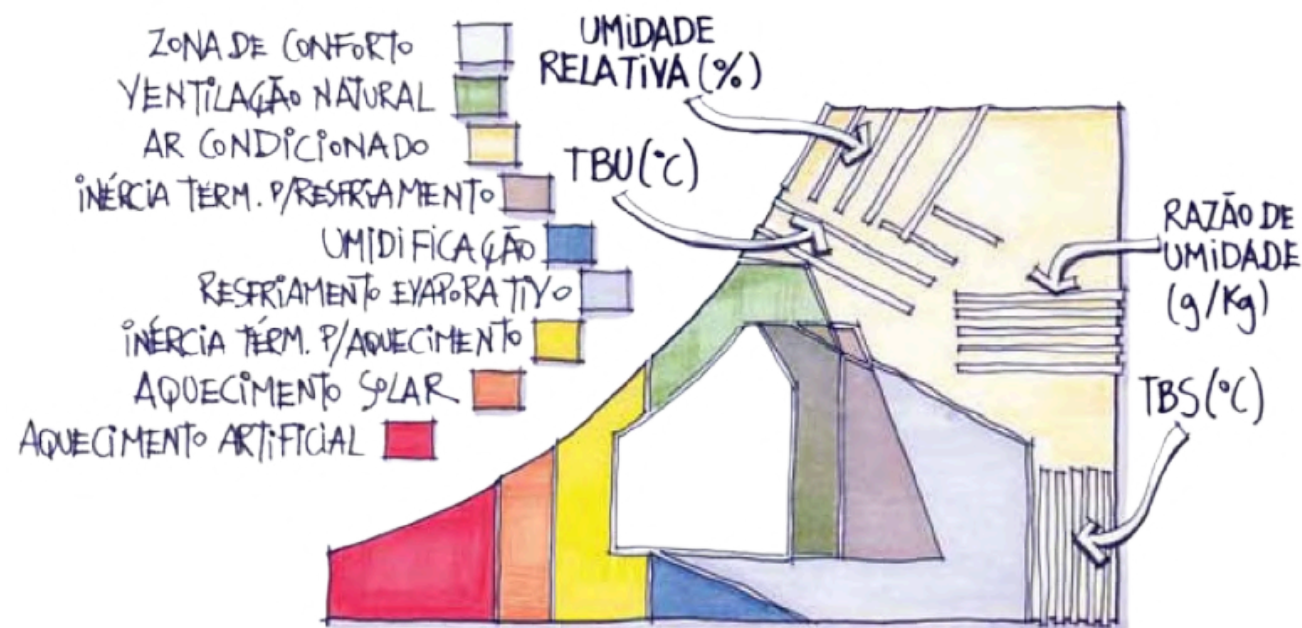 ZONA DE CONFORTO
VENTILAÇÃO NATURAL
AR CONDICIONADO
INÉRCIA TERM. P/RESFRIAMENTO
UMIDIFICAÇÃO
RESFRIAMENTO EVAPORATIVO
INÉRCIA TÉRM. P/AQUECIMENTO
AQUECIMENTO SOLAR
AQUECIMENTO ARTIFICIAL
UMIDADE
RELATIVA (%)
TBU (°C)
RAZÃO DE
UMIDADE
(g/Kg)
TBS (°C)